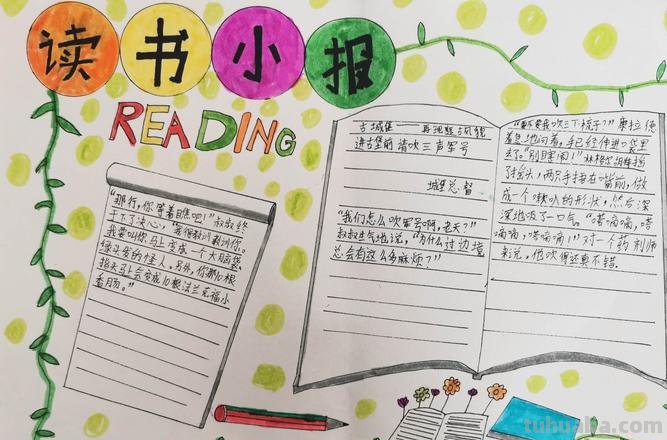 读书小报
READING
"那行,你等着瞧吧!"叔叔终
于下了决心,"我得教训教训你。
我要叫你马上变成一个大脑袋、
绿头发的怪人。另外,你那10根
指头马上会变成10根法兰克福小
香肠。"
古城堡——再现魅古风貌
进古堡前请吹三声军号
城堡总督
"我们怎么吹军号啊,老天?"
叔叔生气地说,"为什么过边境
总会有这么多麻烦?"
"要不要我吹三下梳子?"康拉德
着急地问着,手已经伸进口袋里
去了。"别瞎闹!"林格尔胡特摇
了摇头,两只手捂在嘴前,做
成一个喇叭的形状,然后深
深地吸了一口气。"嗒嘀嘀,嗒
嘀嘀,嗒嘀嘀!"对一个药剂师
来说,他吹得还真不错.
tuhuaka.com